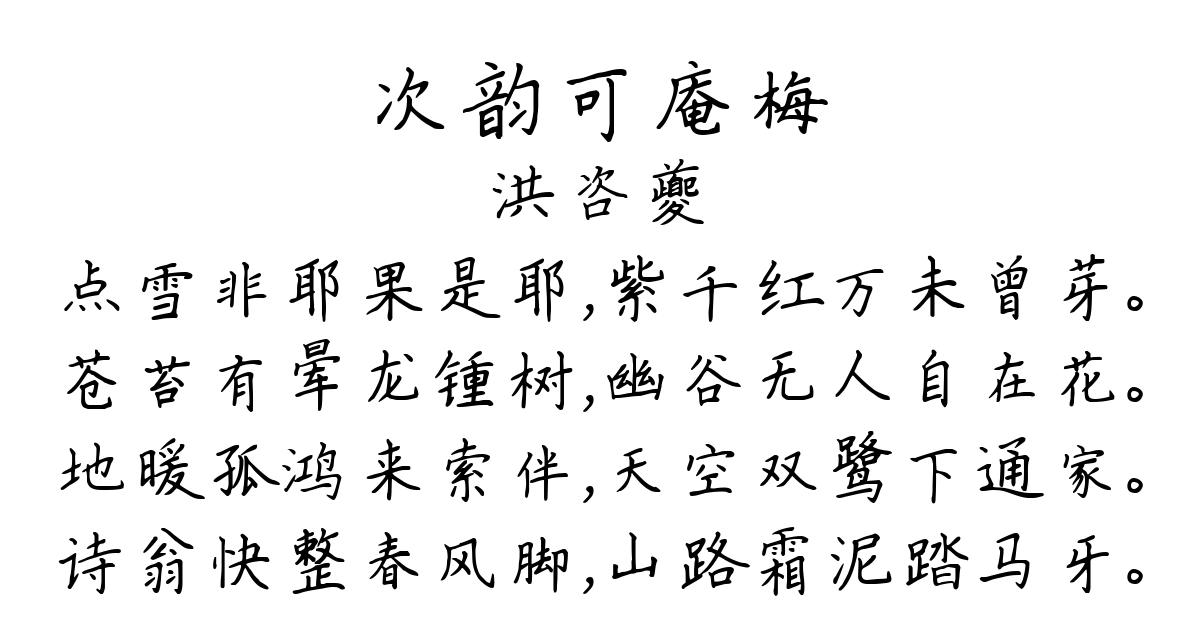 次韵可庵梅
洪咨夔
点雪非耶果是耶,紫千红万未曾芽。
苍苔有晕龙锺树,幽谷无人自在花。
地暖孤鸿来索伴,天空双鹭下通家。
诗翁快整春风脚,山路霜泥踏马牙。